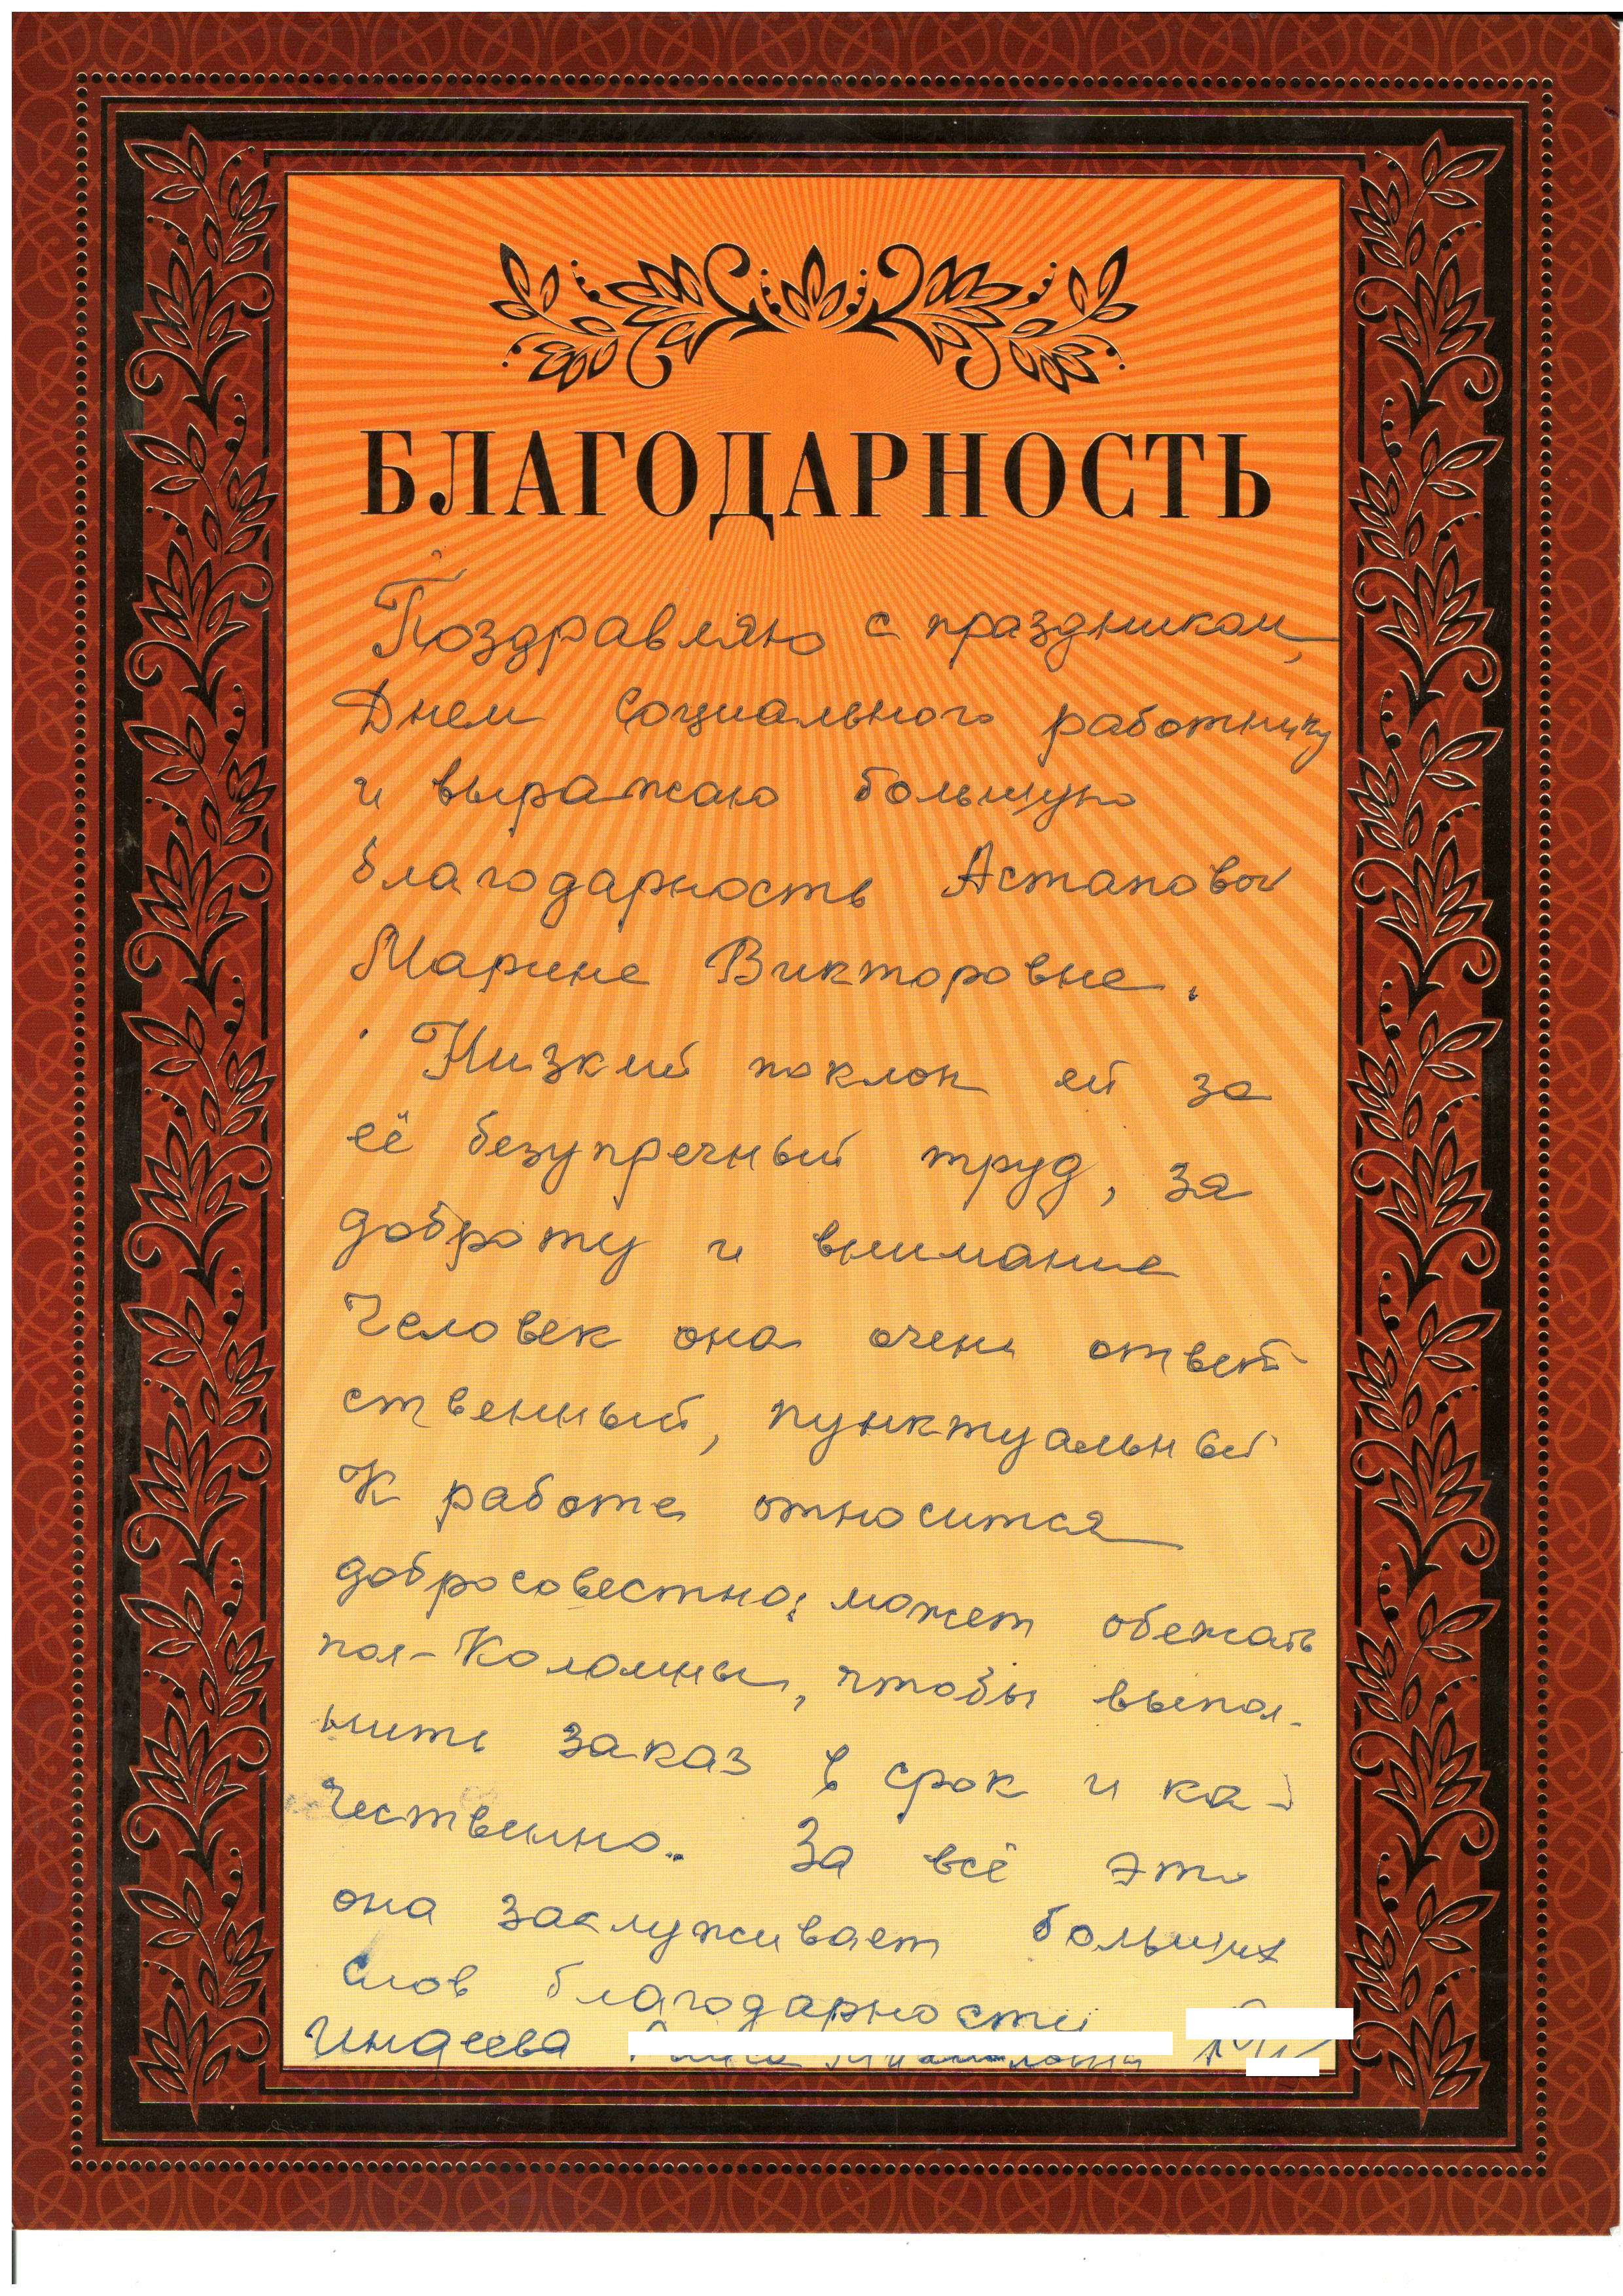 БЛАГОДАРНОСТЬ
Поздравляю с праздником,
Днем социального работника
и выражаю большую
благодарность Астаповой
Марине Викторовне.
Низкий поклон ей за
её безупречный труд, за
доброту и внимание
Человек она очень ответ-
ственный, пунктуальный
К работе относится
добросовестно: может обежать
пол-Коломны, чтобы выпол-
нить заказ в срок и ка-
чественно.. За всё это
она заслуживает больших
слов благодарности
Индеева